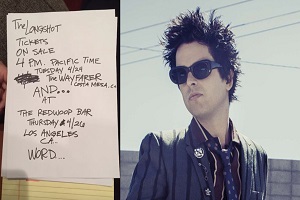 The LONGSHOT
TICKETS
ON SALE
4 P.M. PACIFIC TIME
TUESDAY 4/24
THE WAYFARER
COSTA MESA, CA
AND...
AT
THE REDWOOD BAR
THURSDAY 4/26
LOS ANGELES
CA..
WORD...